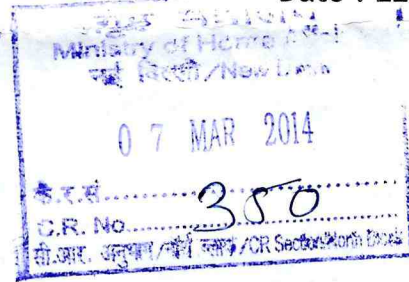 Date : 22
Ministry of Home
नई दिल्ली/New Delhi
07 MAR 2014
के.र.सं.
C.R. No. 350
सी.आर. अनुभाग/नॉर्थ ब्लाक/CR Section/North Block